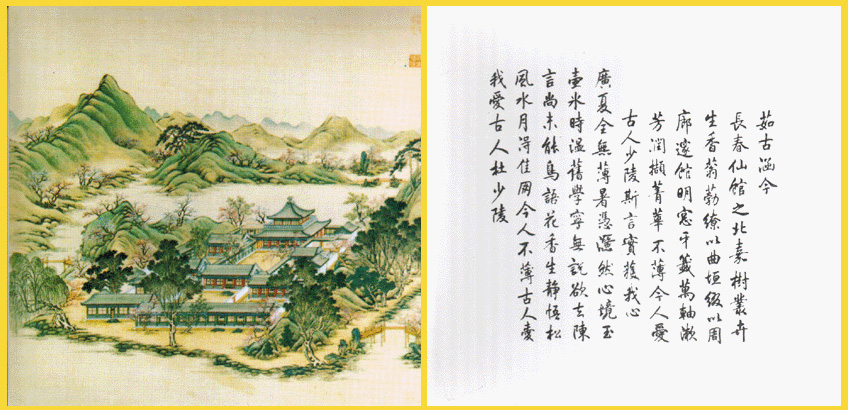 茹古涵今
長春仙館之北嘉樹叢卉
生香蓊葧繚以曲垣綴以周
廊邃館明窓牙籤萬軸漱
芳潤擷菁華不薄今人愛
古人少陵斯言實獲我心
廣夏全無薄暑憑灑然心境玉
壷氷時温舊學寧無說欲去陳
言尚未能鳥語花香生静悟松
風水月淂佳朋今人不薄古人愛
我愛古人杜少陵